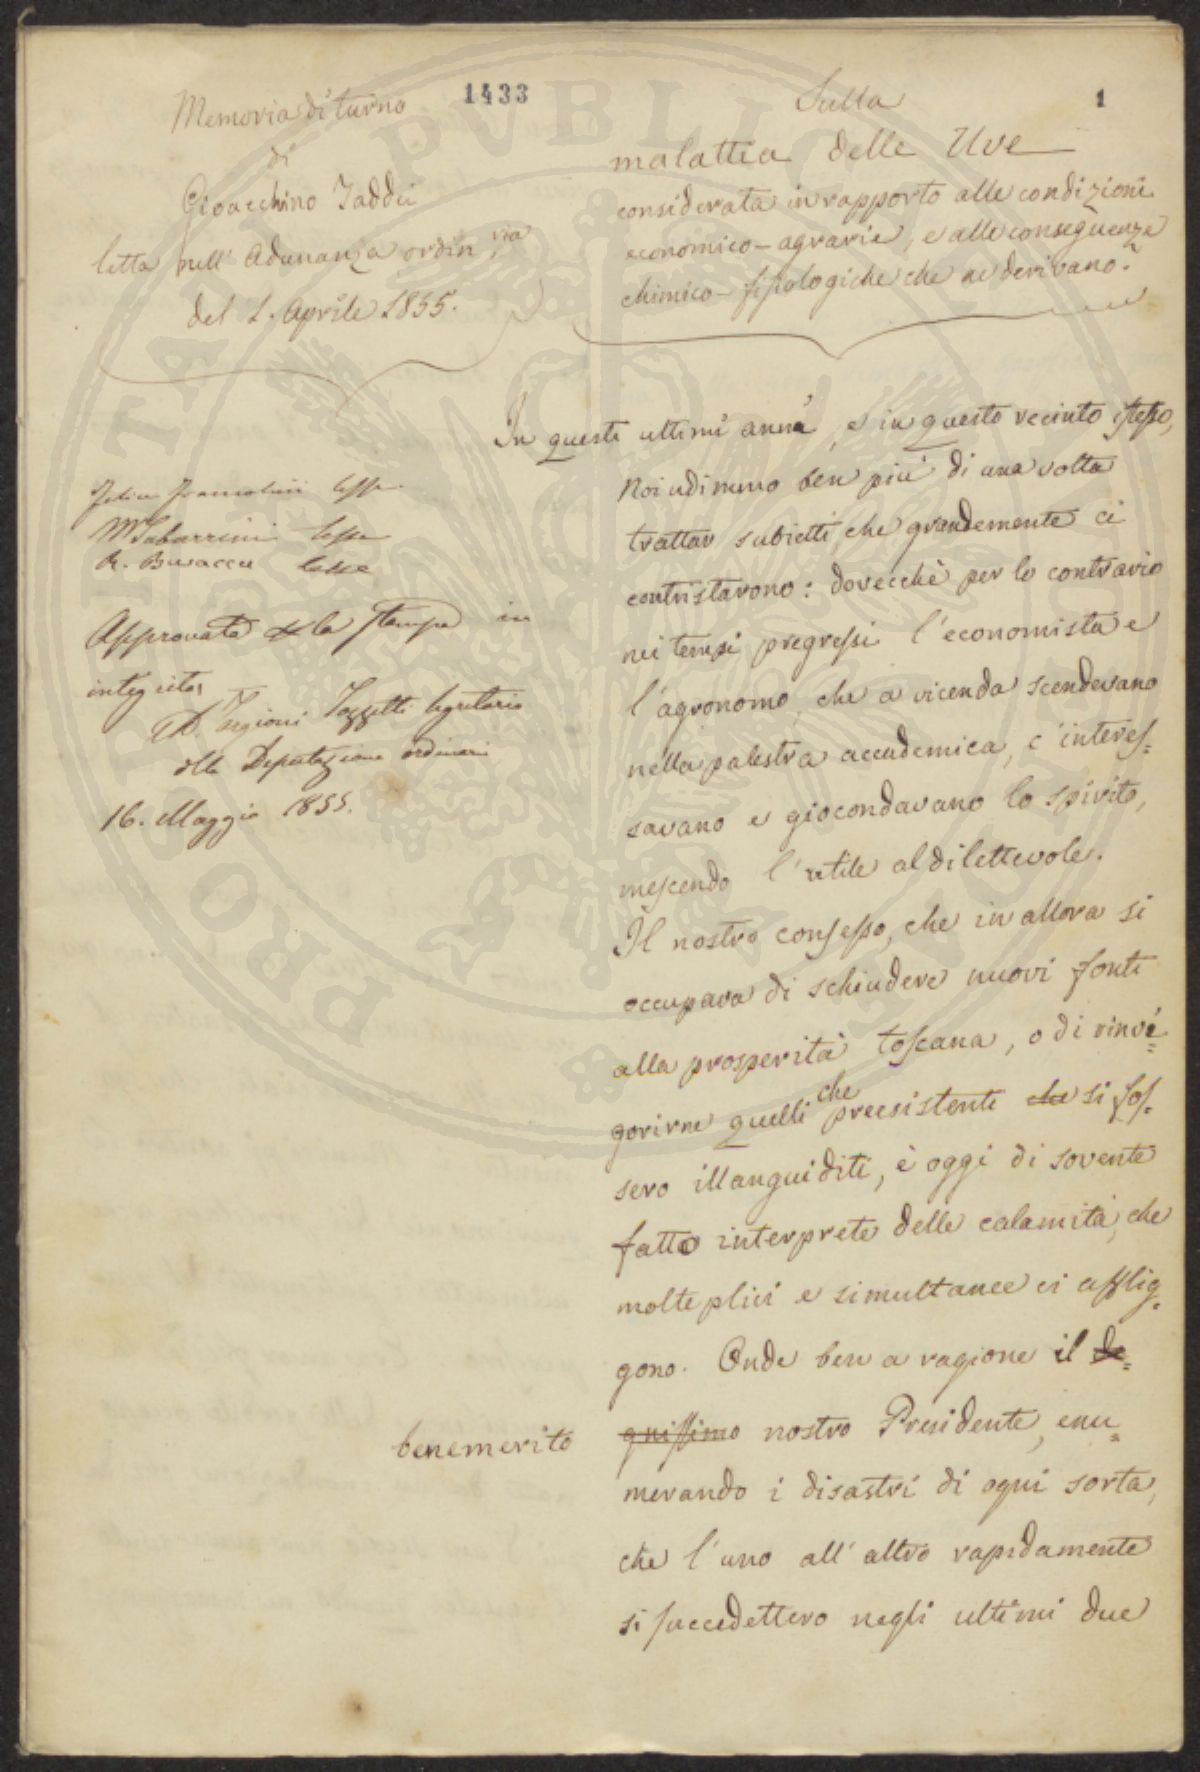 1433
1
Memoria di turno
di
Gioacchino Taddei
letta nell' Adunanza ordin.ria
del 1. Aprile 1855.
Sulla
malattia delle Uve
considerata in rapporto alle condizioni
economico-agrarie, e alle conseguenze
chimico-fisiologiche che ne derivano.
Felice Francolini lesse
M Tabarrini lesse
R. Busacca lesse
Approvata la stampa in
integrità
Tozzetti Segretario
della Deputazione ordinaria
16. Maggio 1855.
In questi ultimi anni, e in questo recinto istesso,
Noi udimmo ben più di una volta
trattar subietti, che grandemente ci
contristarono: dovecchè per lo contrario
nei tempi pregressi l'economista e
l'agronomo, che a vicenda scendevano
nella palestra accademica, c'interes=
savano e giocondavano lo spirito,
mescendo l'utile al dilettevole.
Il nostro consesso, che in allora si
occupava di schiudere nuovi fonti
alla prosperità toscana, o di rinvi=
gorirne quelli che preesistenti che si fos=
sero illanguiditi, è oggi di sovente
fatto interprete delle calamità, che
molteplici e simultanee ci afflig=
gono. Onde ben a ragione il de=
gnissimo nostro Presidente, enu=
benemerito
merando i disastri di ogni sorta,
che l'uno all'altro rapidamente
si succedettero negli ultimi due
PROPRIETA PVBLICA